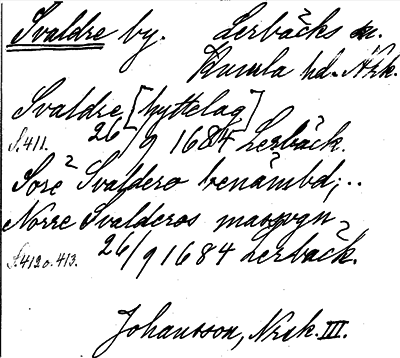 Svaldre by. Lerbäcks sn.
Kumla hd. Närk.
Svaldre [hyttelag]
S. 411. 26/9 1684 Lerbäck.
Sore Svaldero benämbd; ..
Norre Svalderos
S. 412 o. 413. 26/9 1684 Lerbäck.
Johansson, Närk. III.